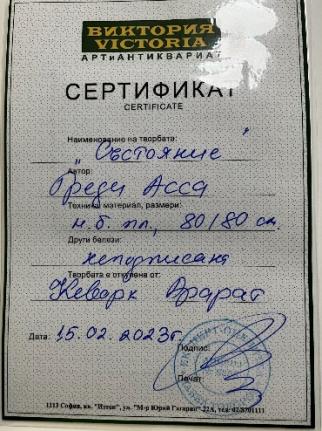 ВИКТОРИЯ
VICTORIA
АРТиАНТИКВАРИАТ
СЕРТИФИКАТ
CERTIFICATE
Наименование на творбата:
„Състояние"
Автор:
Греди Асса
Техника материал, размери:
м. б. пл., 80/80 см.
Други белези:
неподписана
Творбата е откупена от:
Кеворк Арарат
Дата: 15.02.2023г.
Подпис:
Печат
1113 София, кв. "Изток", ул. "М-р Юрий Гагарин" 22А, тел: 02/8701111